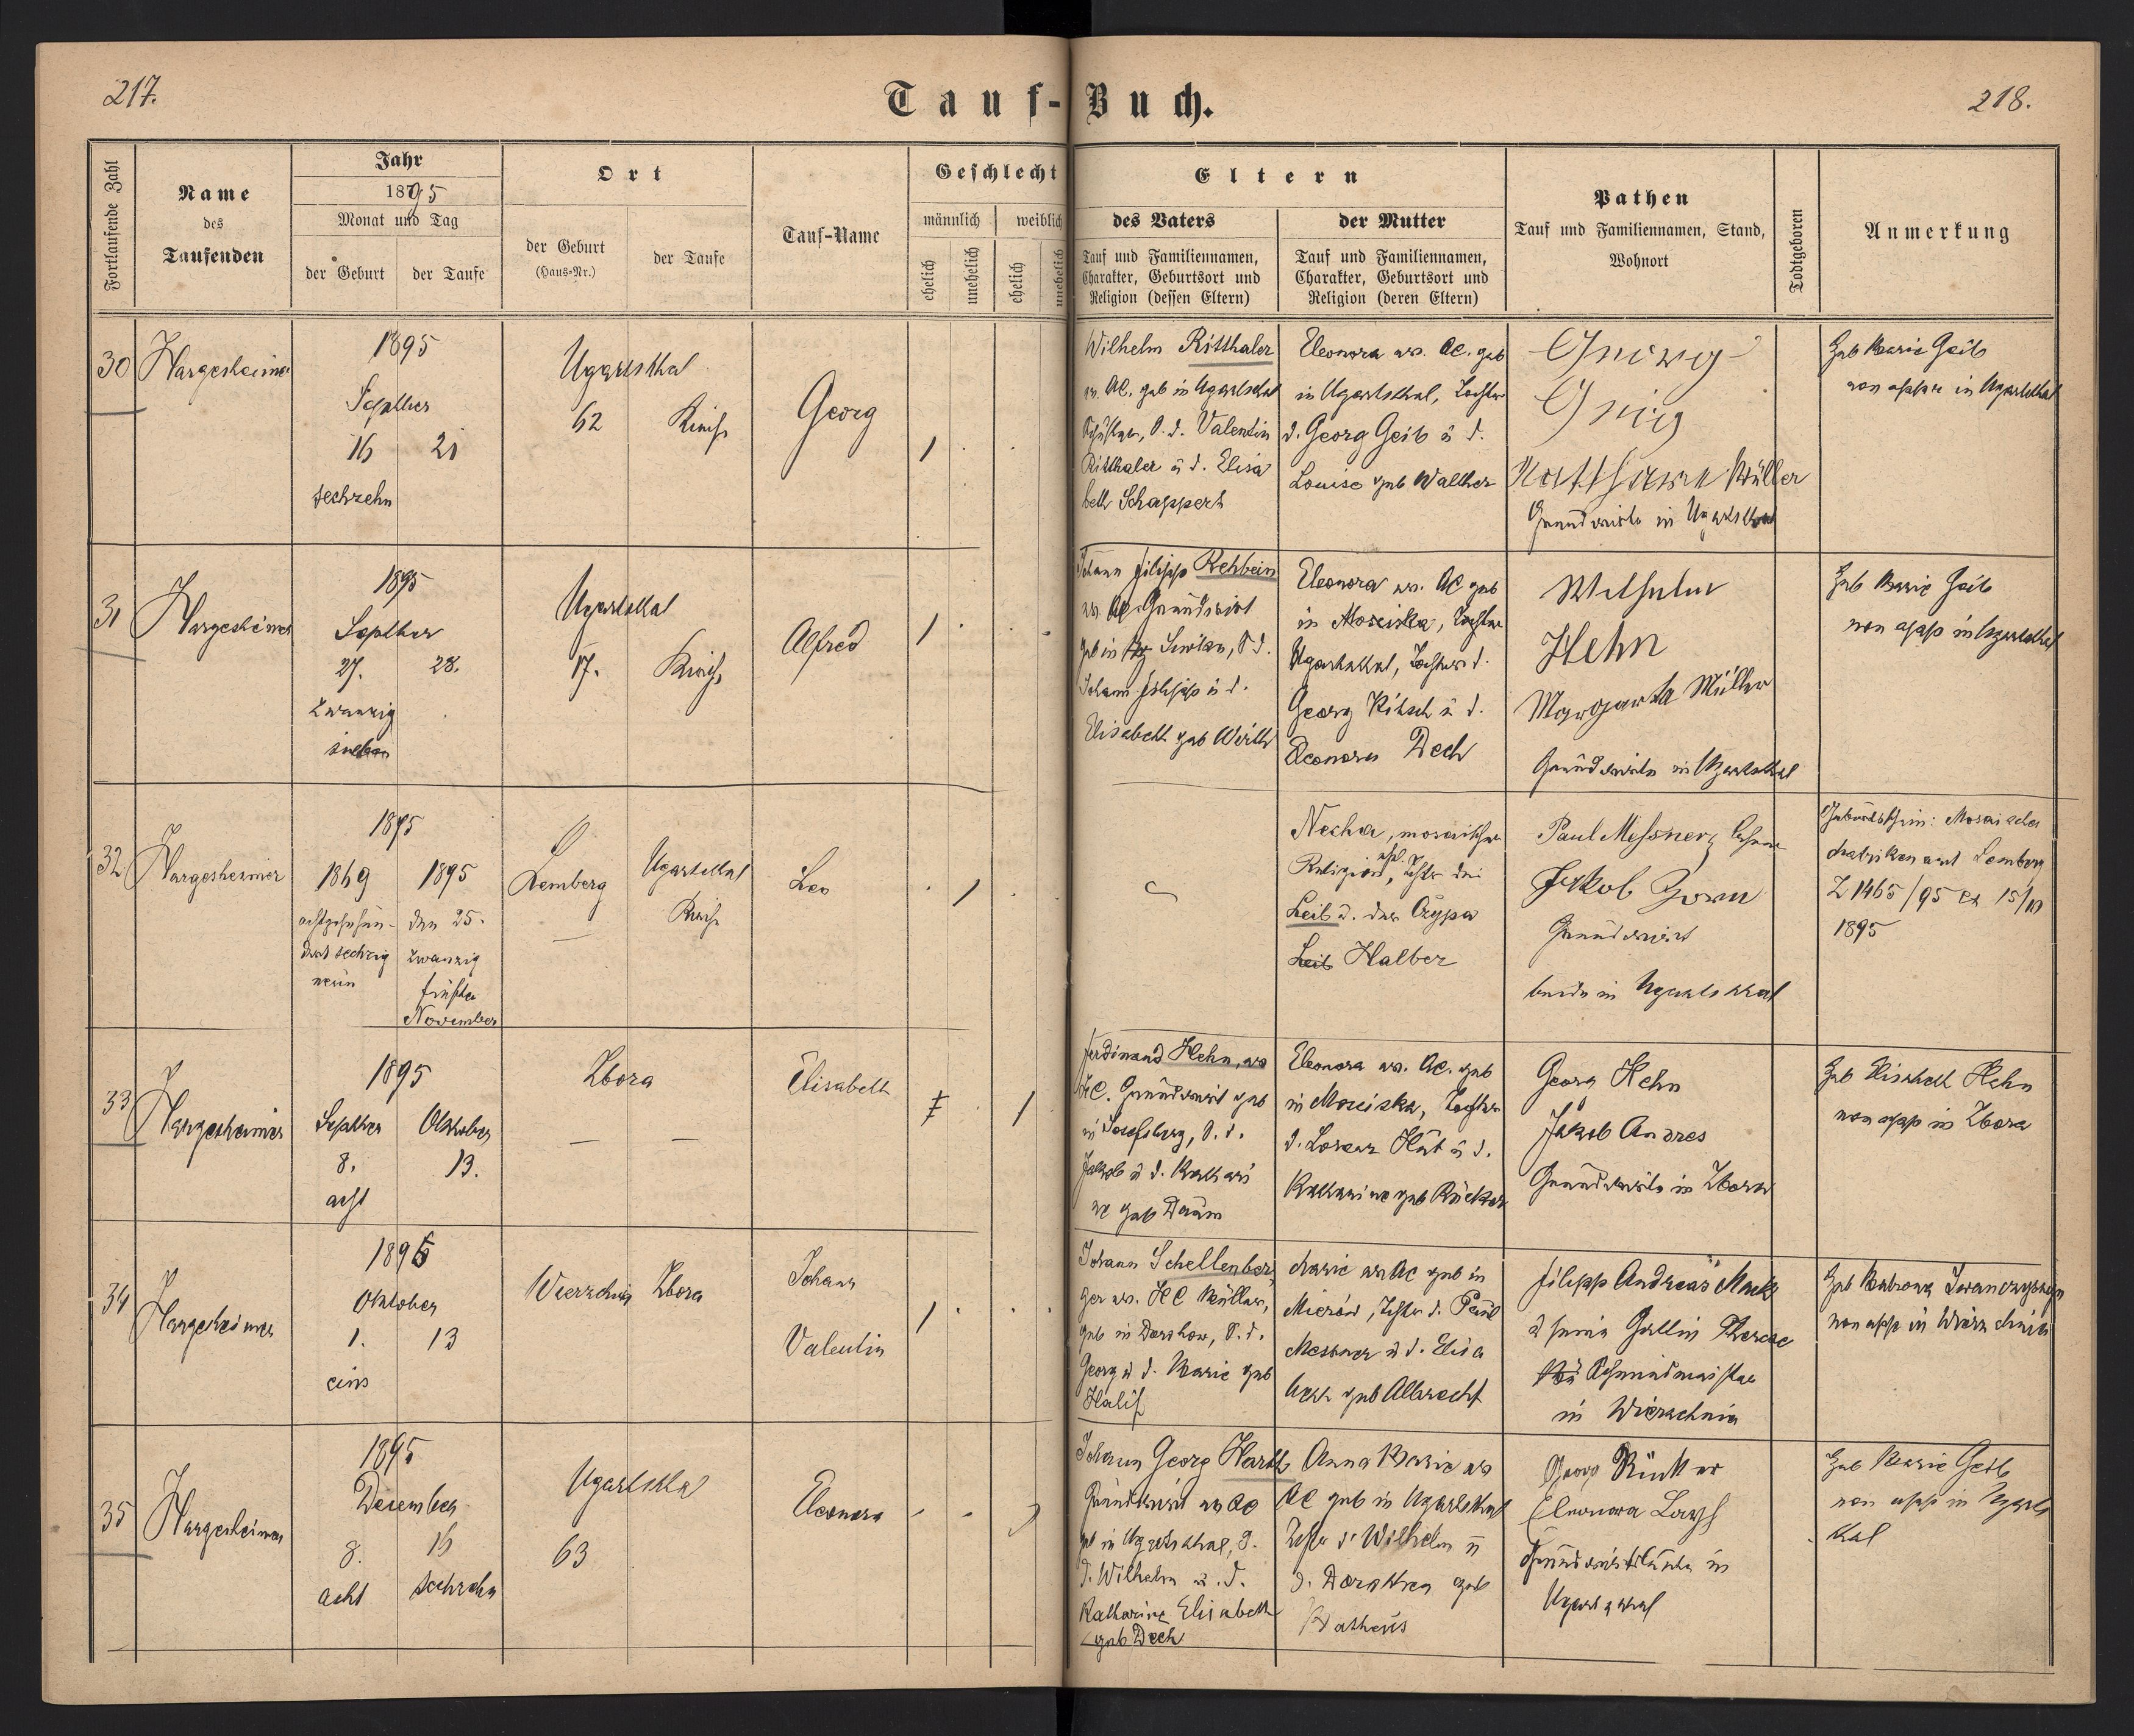 217.
Tauf-Buch.
218.
Fortlaufende Zahl
Name
des
Taufenden
Jahr
1895
Monat und Tag
der Geburt
der Taufe
Ort
der Geburt
(Haus-Nr.)
der Taufe
Tauf-Name
Geschlecht
männlich
weiblich
ehelich
unehelich
ehelich
unehelich
Eltern
des Vaters
Tauf und Familiennamen,
Charakter, Geburtsort und
Religion (dessen Eltern)
der Mutter
Tauf und Familiennamen,
Charakter, Geburtsort und
Religion (deren Eltern)
Pathen
Tauf und Familiennamen, Stand,
Wohnort
Todtgeboren
Anmerkung
30
Hargesheimer
1895
Septber
16
21
sechzehn
Ugartsthal
62
Kirche
Georg
1
Wilhelm Ritthaler
ev. AC. geb in Ugartsthal
S. d. Valentin
Ritthaler u d. Elisa
beth Schappert
Eleonora ev. AC. geb
in Ugartsthal, Tochter
d. Georg Geib u d.
Louise geb Walther
Georg
Müller
Grundwirte in Ugartsthal
Heb Marie Geib
non appr in Ugartsthal
31
Hargesheimer
1895
Septber
27.
28.
zwanzig
sieben
Ugartsthal
17.
Kirche
Alfred
1
Johann Filipp Rehbein
ev. AC Grundwirt
geb in S d.
Johann Filipp u d.
Elisabeth geb Wirth
Eleonora ev. AC geb
in Mosciska, Tochter
Ugartsthal, Tochter d.
Georg Kitsch u d.
Eleonora Dech
Wilhelm
Hehn
Margareta Müller
Grundwirte in Ugartsthal
Heb Marie Geib
non app in Ugartsthal
32
Hargesheimer
1895
1869
1895
achtzehnhun-
dert sechzig
neun
den 25.
zwanzig
fünfter
November
Lemberg
Ugartsthal
Kirche
Leo
1
Necha, mosaischer
Religion, Tochter des
Leib u. der Cypa
Leib Halber
Paul Messner, Lehrer
Jakob Zorn
Grundwirt
beide in Ugartsthal
Geburtsschein: Mosaisches
Matrikenamt Lemberg
Z 1465/95 ex 15/10
1895
33
Hargesheimer
1895
Septber
Oktober
8.
13.
acht
Zbora
Elisabeth
1
Ferdinand Hehn, ev
HC. Grundwirt geb
in Josefsberg, S. d.
Jakob u d. Kathari
ne geb Daum
Eleonora ev. AC. geb
in Mosciska, Tochter
d. Lorenz Hut u d.
Katharine geb Rücker
Georg Hehn
Jakob Andres
Grundwirte in Zbora
Heb Elisabeth Hehn
non app in Zbora
34
Hargesheimer
1895
Oktober
1.
13
eins
Wierzchnia
Zbora
Johann
Valentin
1
Johann Schellenber
ger ev. HC Müller,
geb in S. d.
Georg u d. Marie geb
Marie ev AC geb in
Mierów, Tochter d. Paul
Messner u d. Elisa
geb Albrecht
Filipp Andreas
u seine Gattin Therese
Schmidmeister
in Wierzchnia
non app in Wierzchnia
35
Hargesheimer
1895
Dezember
8.
16
acht
sechzehn
Ugartsthal
63
Eleonora
Johann Georg Harth
Grundwirt ev AC
geb in Ugartsthal, S.
d. Wilhelm u. d.
Katharine Elisabeth
geb Dech
Anna Marie ev
AC geb in Ugartsthal
Tochter d Wilhelm u
d. Dorothea geb
Matheus
Georg Rücker
Eleonora
Grundwirtsleute in
Ugartsthal
Heb Marie Geib
non app in Ugarts
thal